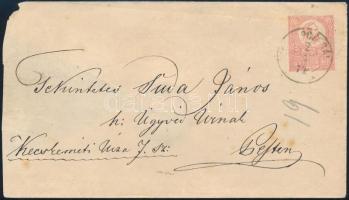 Tekintetes Suda János
h: Ügyvéd Úrnak
Kecskeméti Utza 7. sz.
Pesten
19